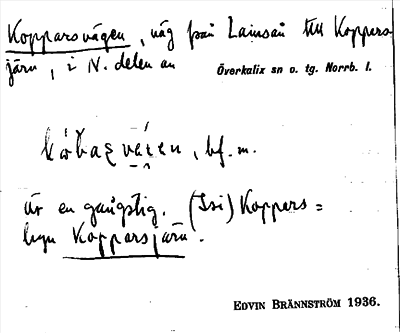 Kopparsvägen, väg från Lainsån till Koppars-
järn, i N. delen av
Överkalix sn o. tg. Norrb. l.
bf. m.
är en gångstig. Koppers=
Kopparsjärn.
EDVIN BRÄNNSTRÖM 1936.